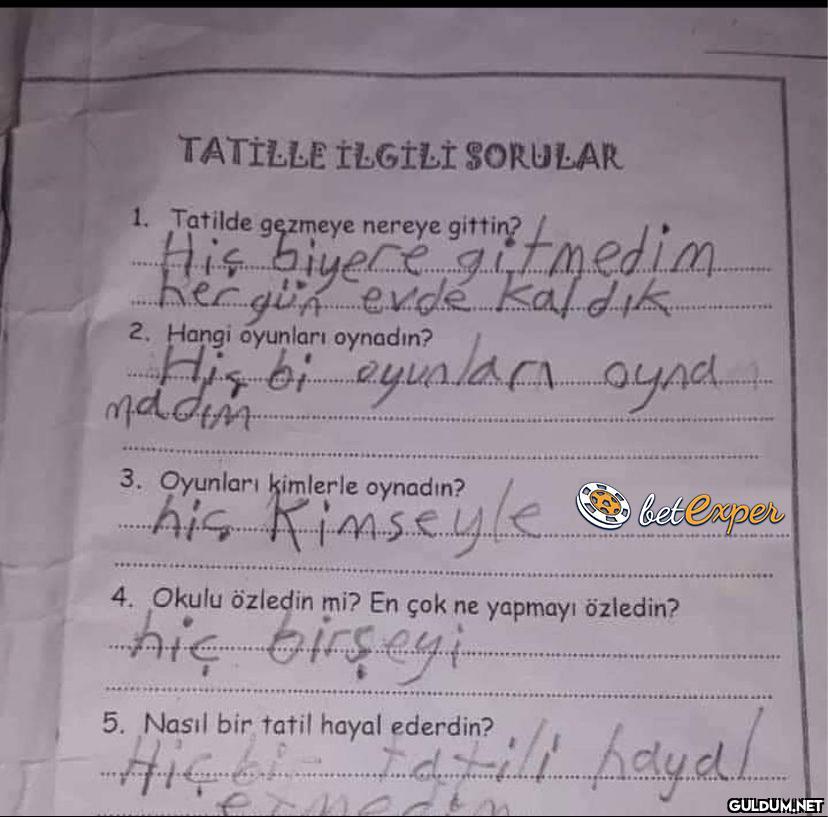 TATİLLE İLGİLİ SORULAR
1. Tatilde gezmeye nereye gittin?
Hiç biyere gitmedim
her gün evde kaldık
2. Hangi oyunları oynadın?
Hiç bi oyunları oyna
madım
3. Oyunları kimlerle oynadın?
hiç kimseyle
betexper
4. Okulu özledin mi? En çok ne yapmayı özledin?
hiç birşeyi
5. Nasıl bir tatil hayal ederdin?
Hiç bir tatili hayal
etmedim
GULDUM.NET